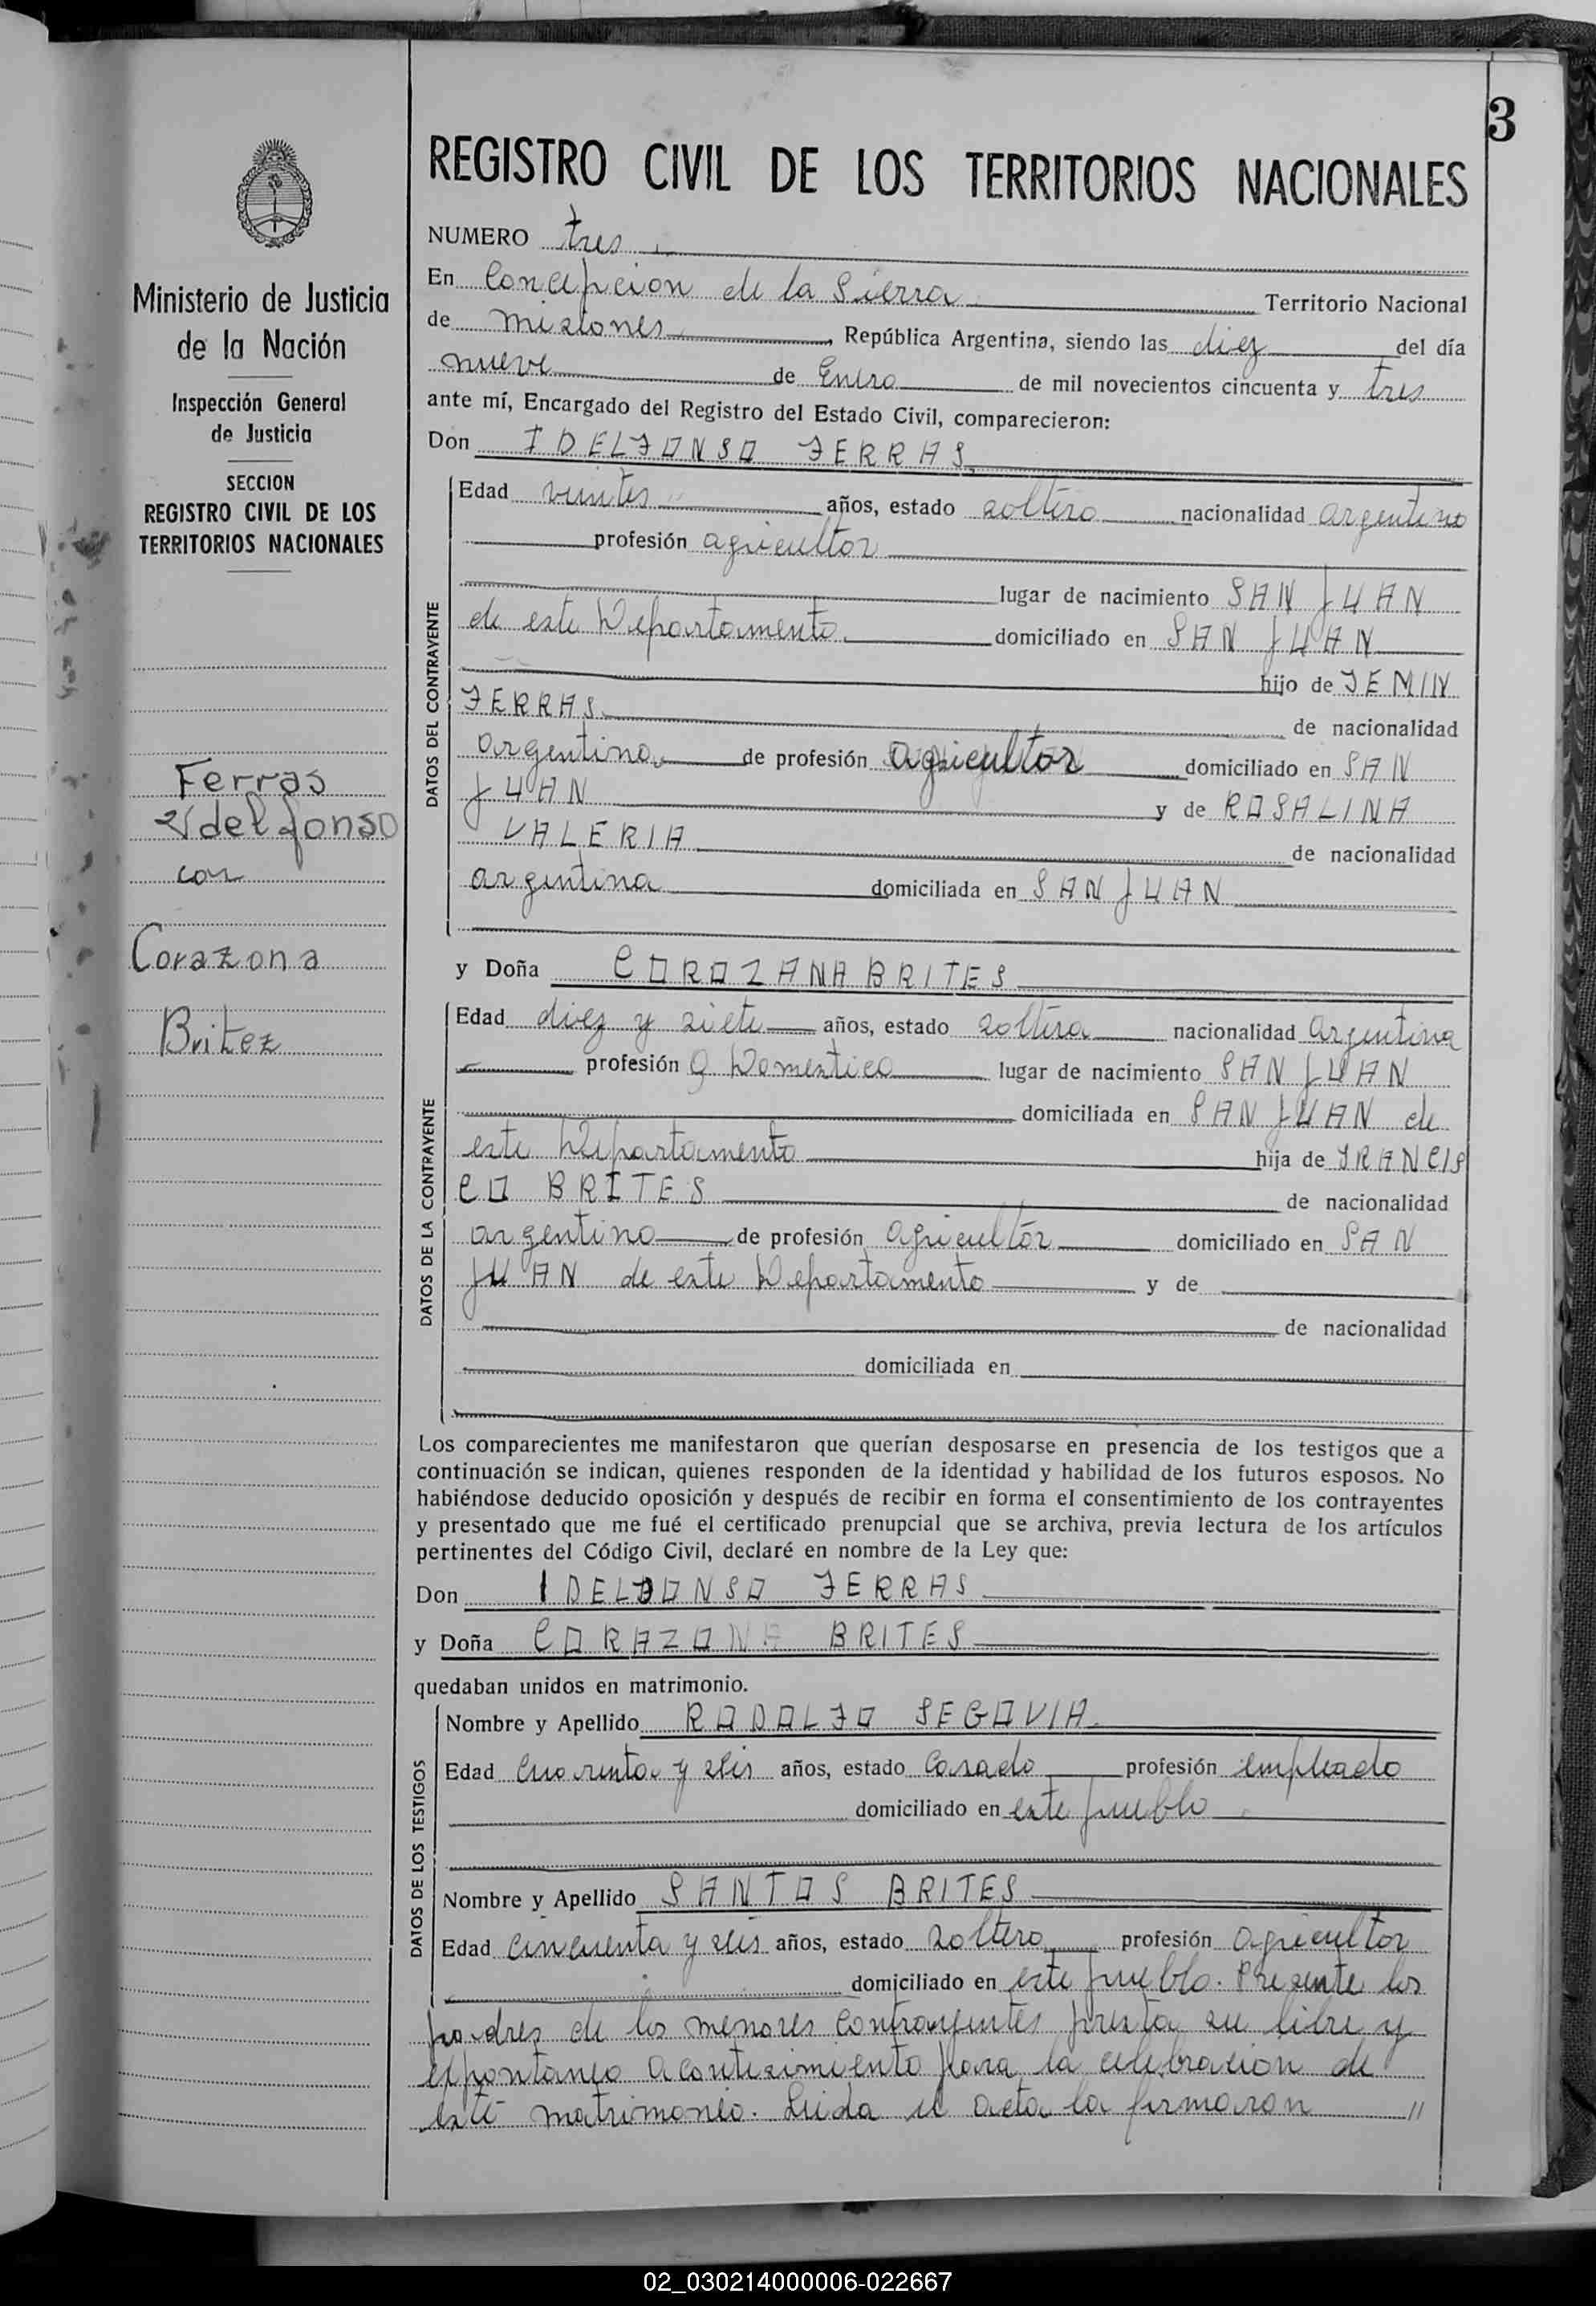 3
REGISTRO CIVIL DE LOS TERRITORIOS NACIONALES
Ministerio de Justicia
de la Nación
Inspección General
de Justicia
SECCION
REGISTRO CIVIL DE LOS
TERRITORIOS NACIONALES
Ferras
Ydelfonso
con
Corazona
Britez
NUMERO tres
En Concepcion de la Sierra Territorio Nacional
de Misiones, República Argentina, siendo las diez del día
nueve de Enero de mil novecientos cincuenta y tres
ante mí, Encargado del Registro del Estado Civil, comparecieron:
Don IDELFONSO FERRAS
DATOS DEL CONTRAYENTE
Edad años, estado soltero nacionalidad argentino
profesión agricultor
lugar de nacimiento SAN JUAN
de este Departamento domiciliado en SAN JUAN
hijo de FEMIN
FERRAS de nacionalidad
argentina de profesión agricultor domiciliado en SAN
JUAN y de ROSALINA
VALERIA de nacionalidad
argentina domiciliada en SAN JUAN
y Doña COROZANA BRITES
DATOS DE LA CONTRAYENTE
Edad diez y siete años, estado soltera nacionalidad argentina
profesión q Domestico lugar de nacimiento SAN JUAN
domiciliada en SAN JUAN de
este Departamento hija de FRANCIS
CO BRITES de nacionalidad
argentino de profesión agricultor domiciliado en SAN
JUAN de este Departamento y de
de nacionalidad
domiciliada en
Los comparecientes me manifestaron que querían desposarse en presencia de los testigos que a
continuación se indican, quienes responden de la identidad y habilidad de los futuros esposos. No
habiéndose deducido oposición y después de recibir en forma el consentimiento de los contrayentes
y presentado que me fué el certificado prenupcial que se archiva, previa lectura de los artículos
pertinentes del Código Civil, declaré en nombre de la Ley que:
Don IDELFONSO FERRAS
y Doña CORAZONA BRITES
quedaban unidos en matrimonio.
DATOS DE LOS TESTIGOS
Nombre y Apellido RODOLFO SEGOVIA
Edad cuarenta y seis años, estado Casado profesión empleado
domiciliado en este pueblo
Nombre y Apellido SANTOS BRITES
Edad cincuenta y seis años, estado soltero profesión agricultor
domiciliado en este pueblo. Presente los
padres de los menores contrayentes presta su libre y
espontaneo para la celebracion de
este matrimonio. Leida el acta la firmaron "
02_030214000006-022667